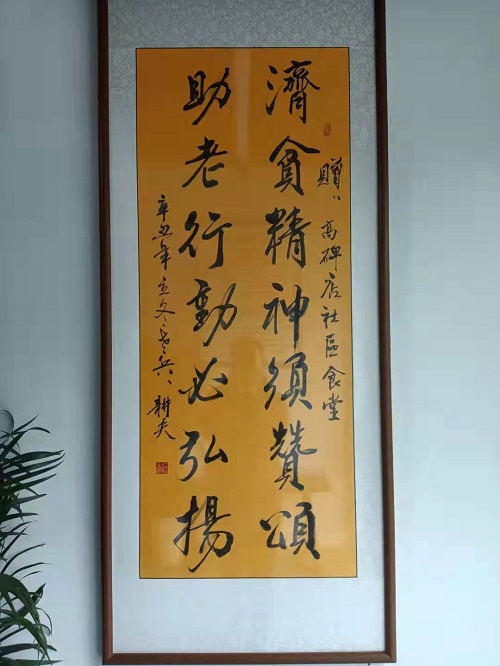 贈：高碑店社區食堂
濟貧精神須贊頌
助老行動必弘揚
辛丑年立冬老兵耕夫